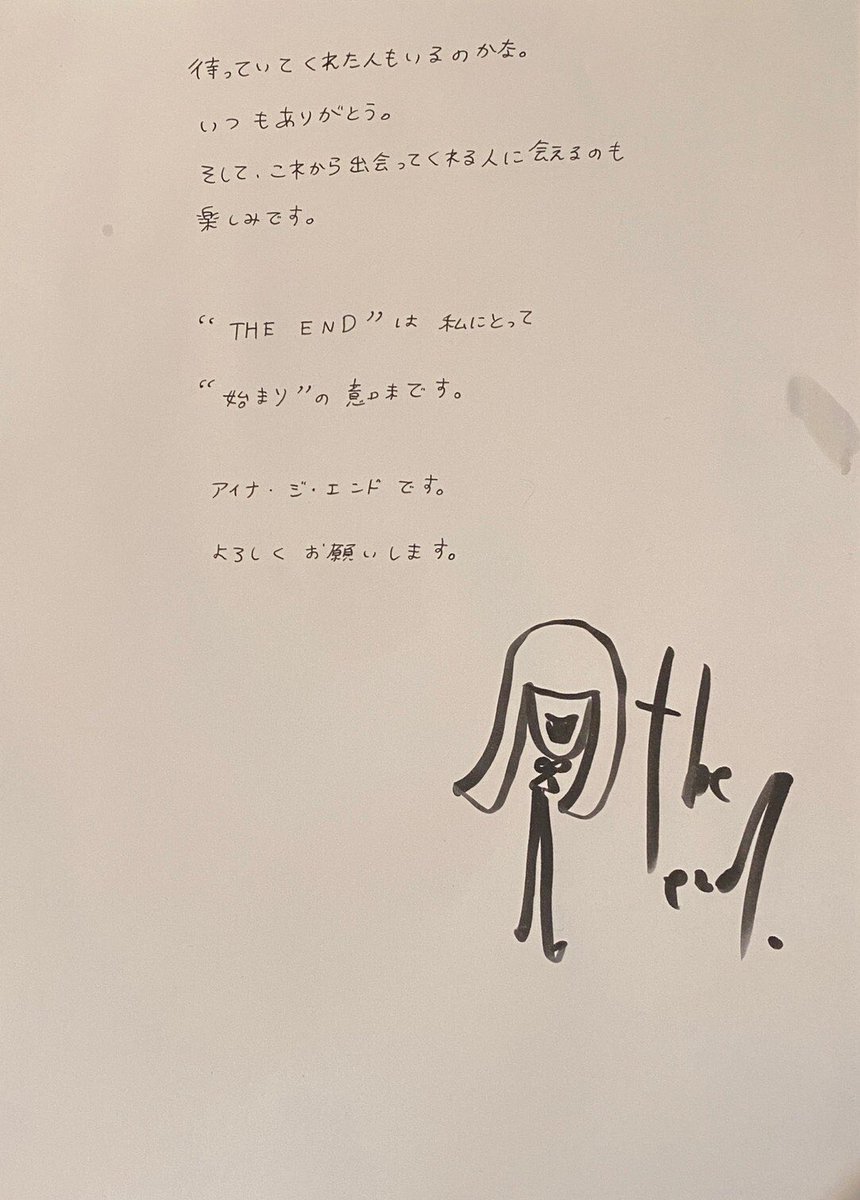 待っていてくれた人もいるのかな。
いつもありがとう。
そして、これから出会ってくれる人に会えるのも
楽しみです。
“THE END”は 私にとって
“始まり”の意味です。
アイナ・ジ・エンドです。
よろしくお願いします。
the
end.